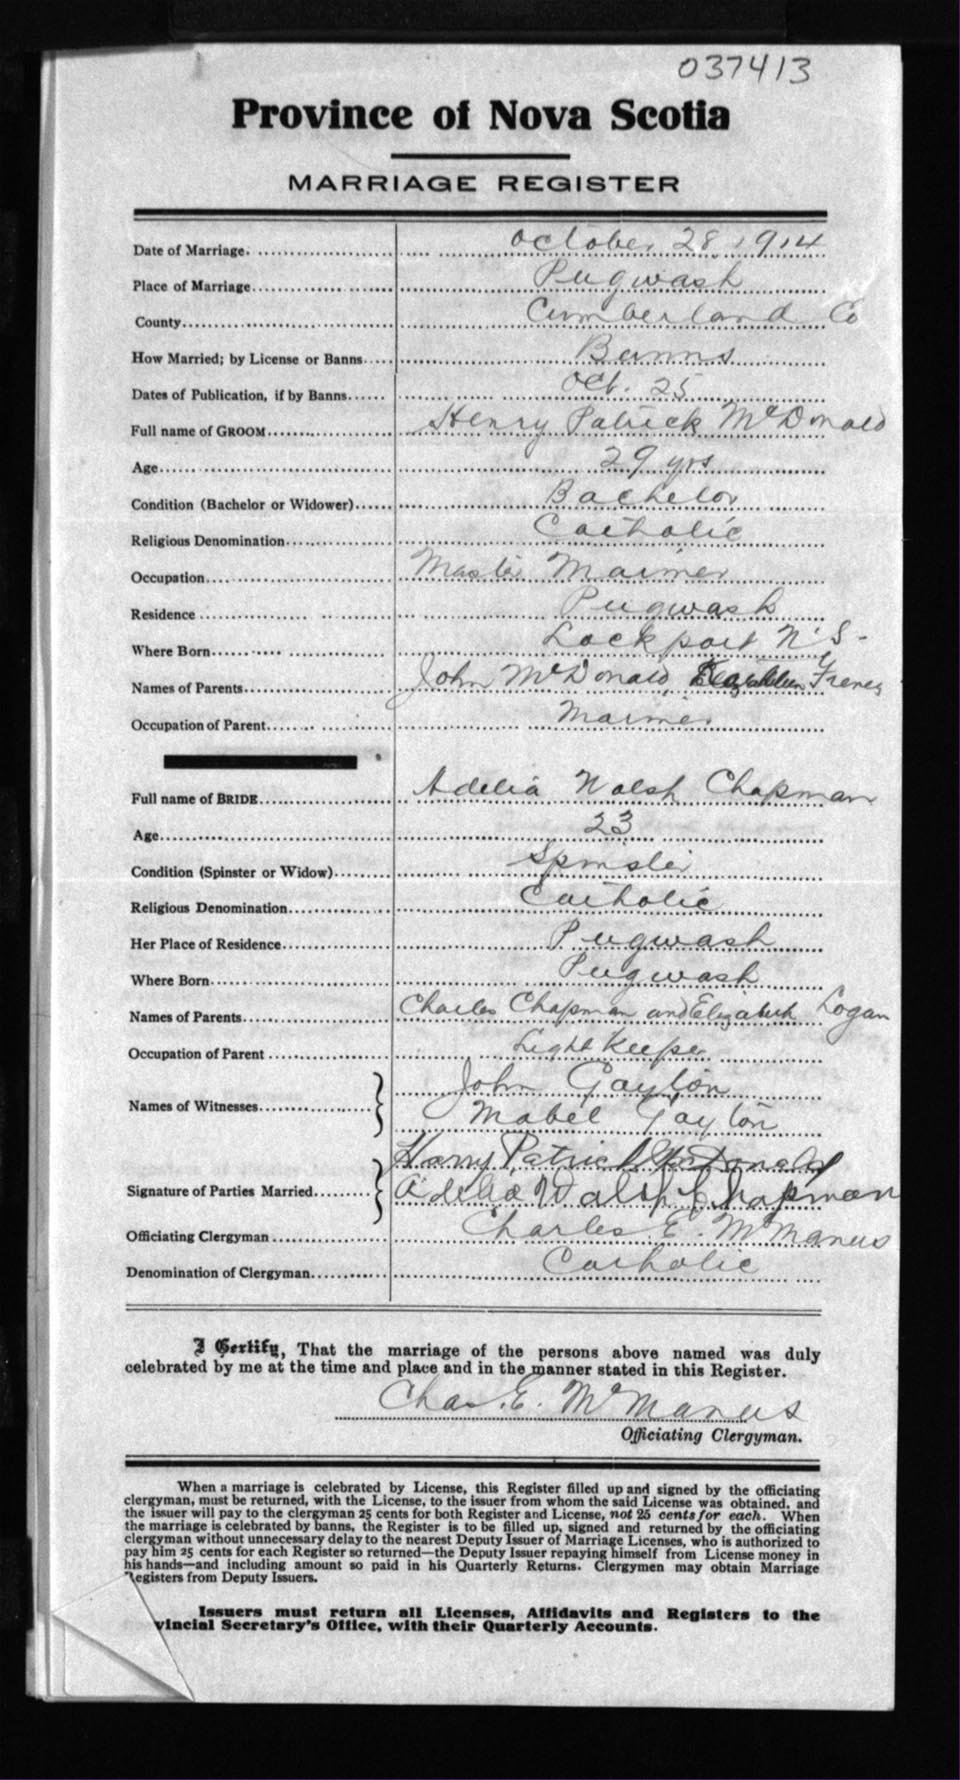 037413
Province of Nova Scotia
MARRIAGE REGISTER
Date of Marriage. October 28, 1914
Place of Marriage Pugwash
County Cumberland Co
How Married; by License or Banns Banns
Dates of Publication, if by Banns Oct. 25
Full name of GROOM Henry Patrick McDonald
Age 29 yrs
Condition (Bachelor or Widower) Bachelor
Religious Denomination Catholic
Occupation Master Mariner
Residence Pugwash
Where Born Lockport N.S.
Names of Parents John McDonald
Occupation of Parent Mariner
Full name of BRIDE Adelia Walsh Chapman
Age 23
Condition (Spinster or Widow) Spinster
Religious Denomination Catholic
Her Place of Residence Pugwash
Where Born Pugwash
Names of Parents Charles Chapman and Elizabeth Logan
Occupation of Parent Light Keeper
Names of Witnesses John Gayton
Mabel Gayton
Signature of Parties Married Harry Patrick McDonald
Adelia Walsh Chapman
Officiating Clergyman Charles E. McManus
Denomination of Clergyman Catholic
I Certify, That the marriage of the persons above named was duly
celebrated by me at the time and place and in the manner stated in this Register.
Chas. E. McManus
Officiating Clergyman.
When a marriage is celebrated by License, this Register filled up and signed by the officiating
clergyman, must be returned, with the License, to the issuer from whom the said License was obtained, and
the issuer will pay to the clergyman 25 cents for both Register and License, not 25 cents for each. When
the marriage is celebrated by banns, the Register is to be filled up, signed and returned by the officiating
clergyman without unnecessary delay to the nearest Deputy Issuer of Marriage Licenses, who is authorized to
pay him 25 cents for each Register so returned—the Deputy Issuer repaying himself from License money in
his hands—and including amount so paid in his Quarterly Returns. Clergymen may obtain Marriage
Registers from Deputy Issuers.
Issuers must return all Licenses, Affidavits and Registers to the
vincial Secretary's Office, with their Quarterly Accounts.